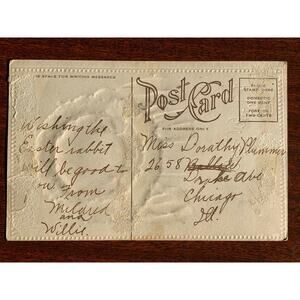 THIS SPACE FOR WRITING MESSAGES
Post Card
FOR ADDRESS ONLY
PLACE
STAMP HERE
DOMESTIC
ONE CENT
FOREIGN
TWO CENTS
Wishing the
Easter rabbit
will be good to
you From
Mildred
and
Willie.
Miss Dorathy Plummer
2658
Drake Ave
Chicago
Ill.